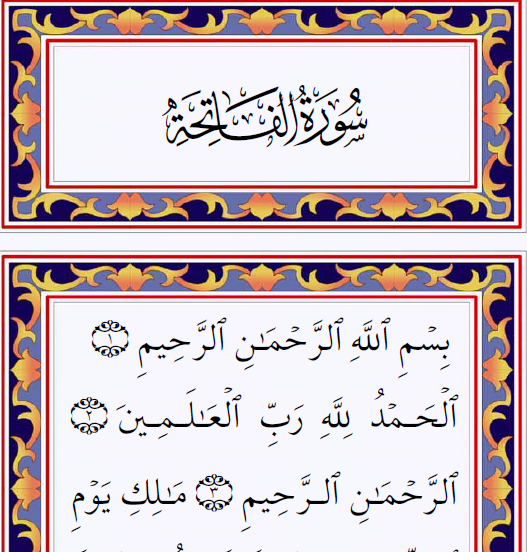 سُورَةُ الْفَاتِحَةِ
بِسْمِ ٱللَّهِ ٱلرَّحْمَـٰنِ ٱلرَّحِيمِ ١
ٱلْحَـمْدُ لِلَّهِ رَبِّ ٱلْعَـٰلَـمِـينَ ٢
ٱلرَّحْمَـٰنِ ٱلـرَّحِيمِ ٣ مَـٰلِكِ يَوْمِ